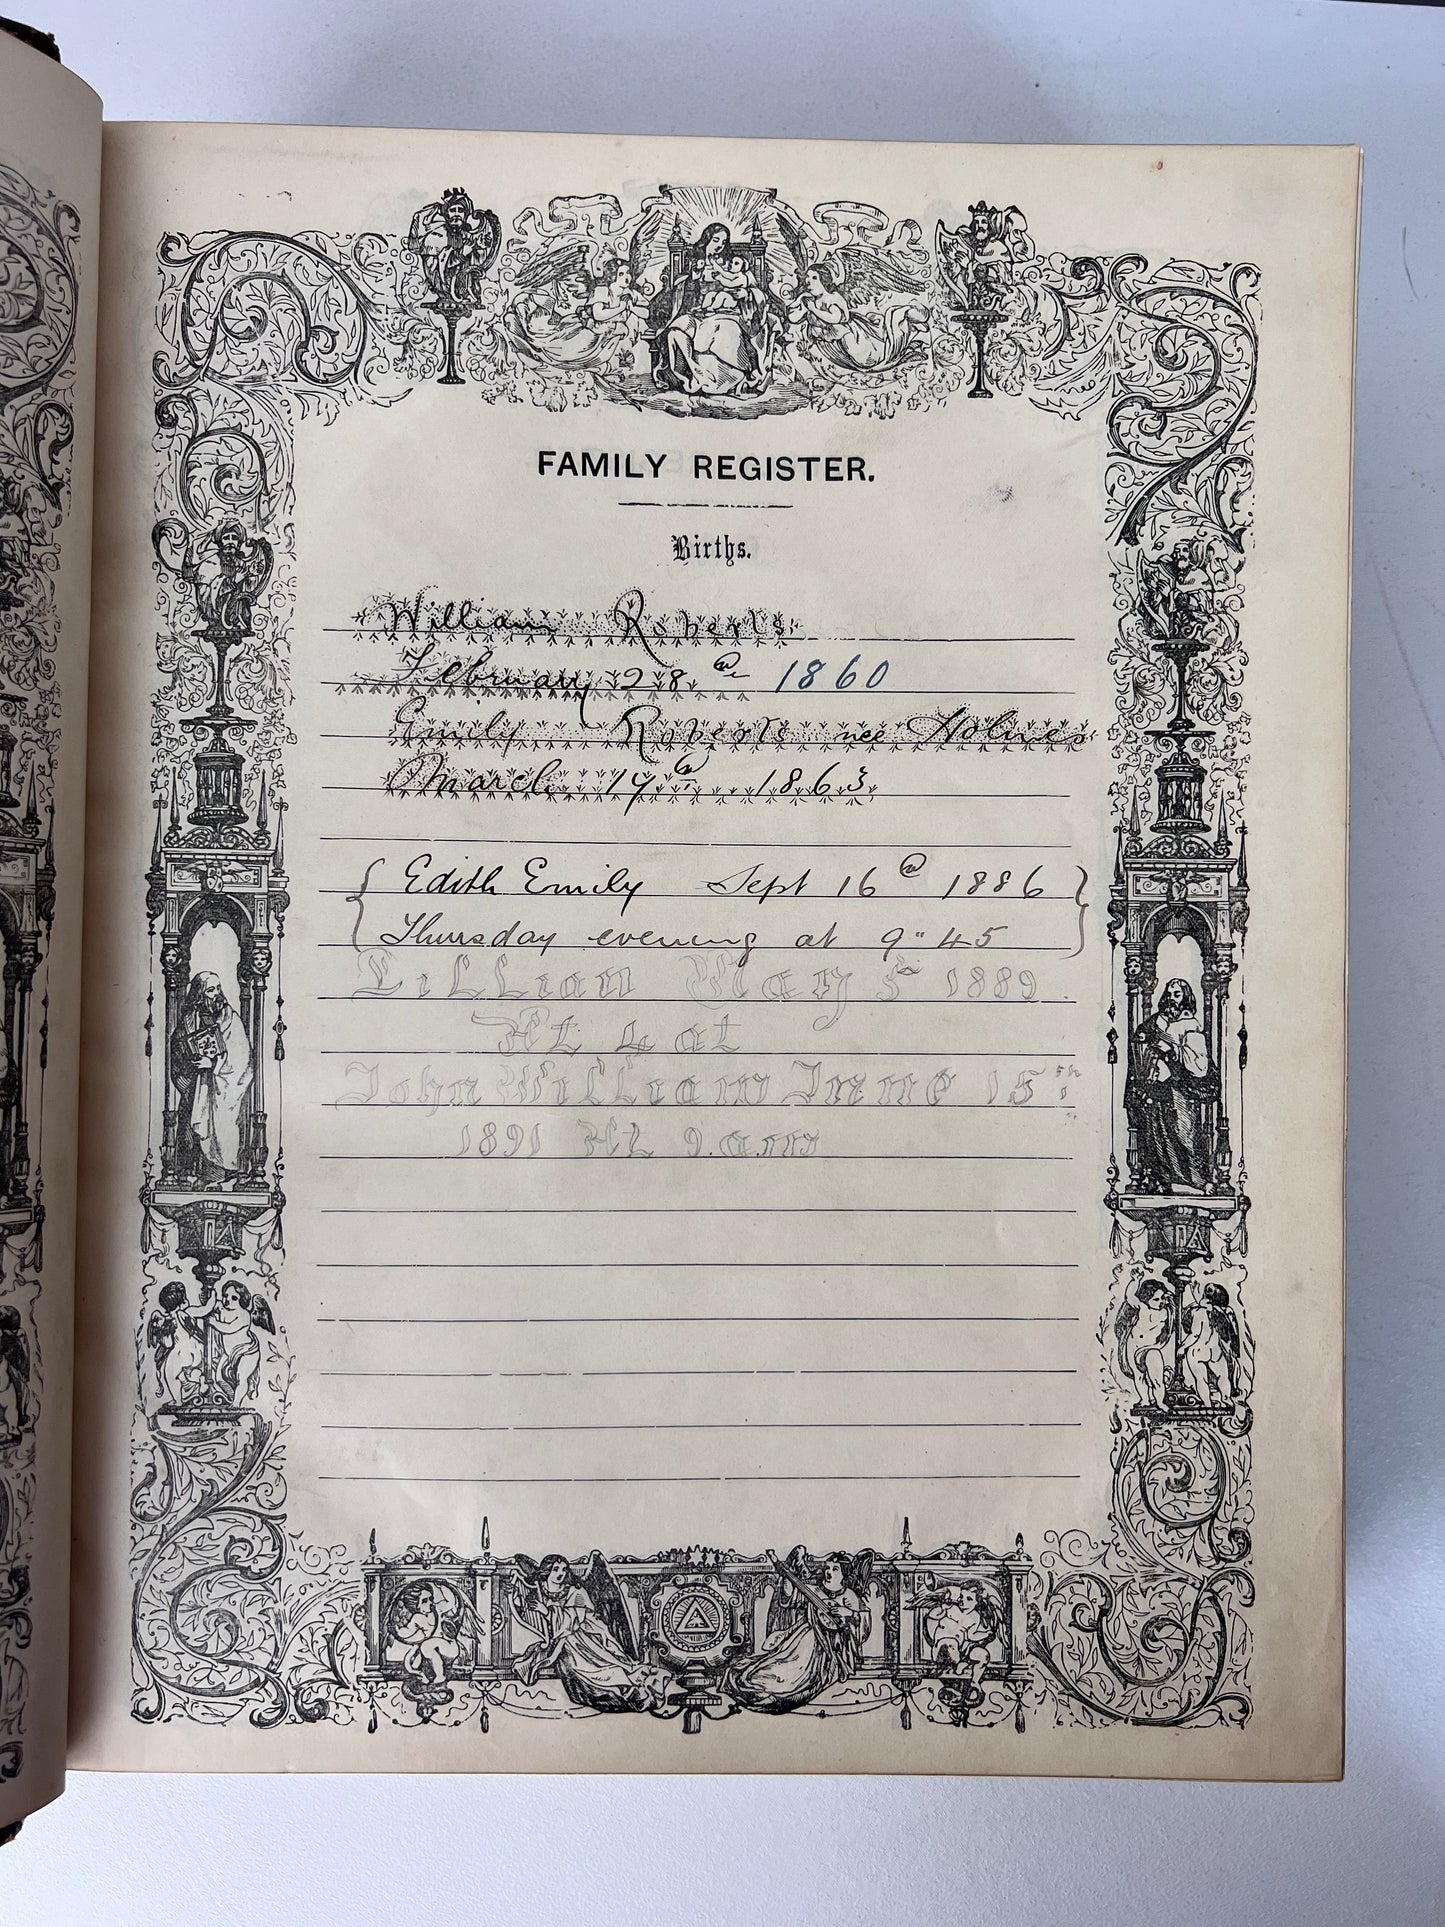 FAMILY REGISTER.
Births.
William Roberts
February 28th 1860
Emily Roberts nee Holmes
March 14th 1863
Edith Emily Sept 16th 1886
Thursday evening at 9" 45
Lillian May 5th 1889.
At 4 at
John William June 15th
1891 At 9.am